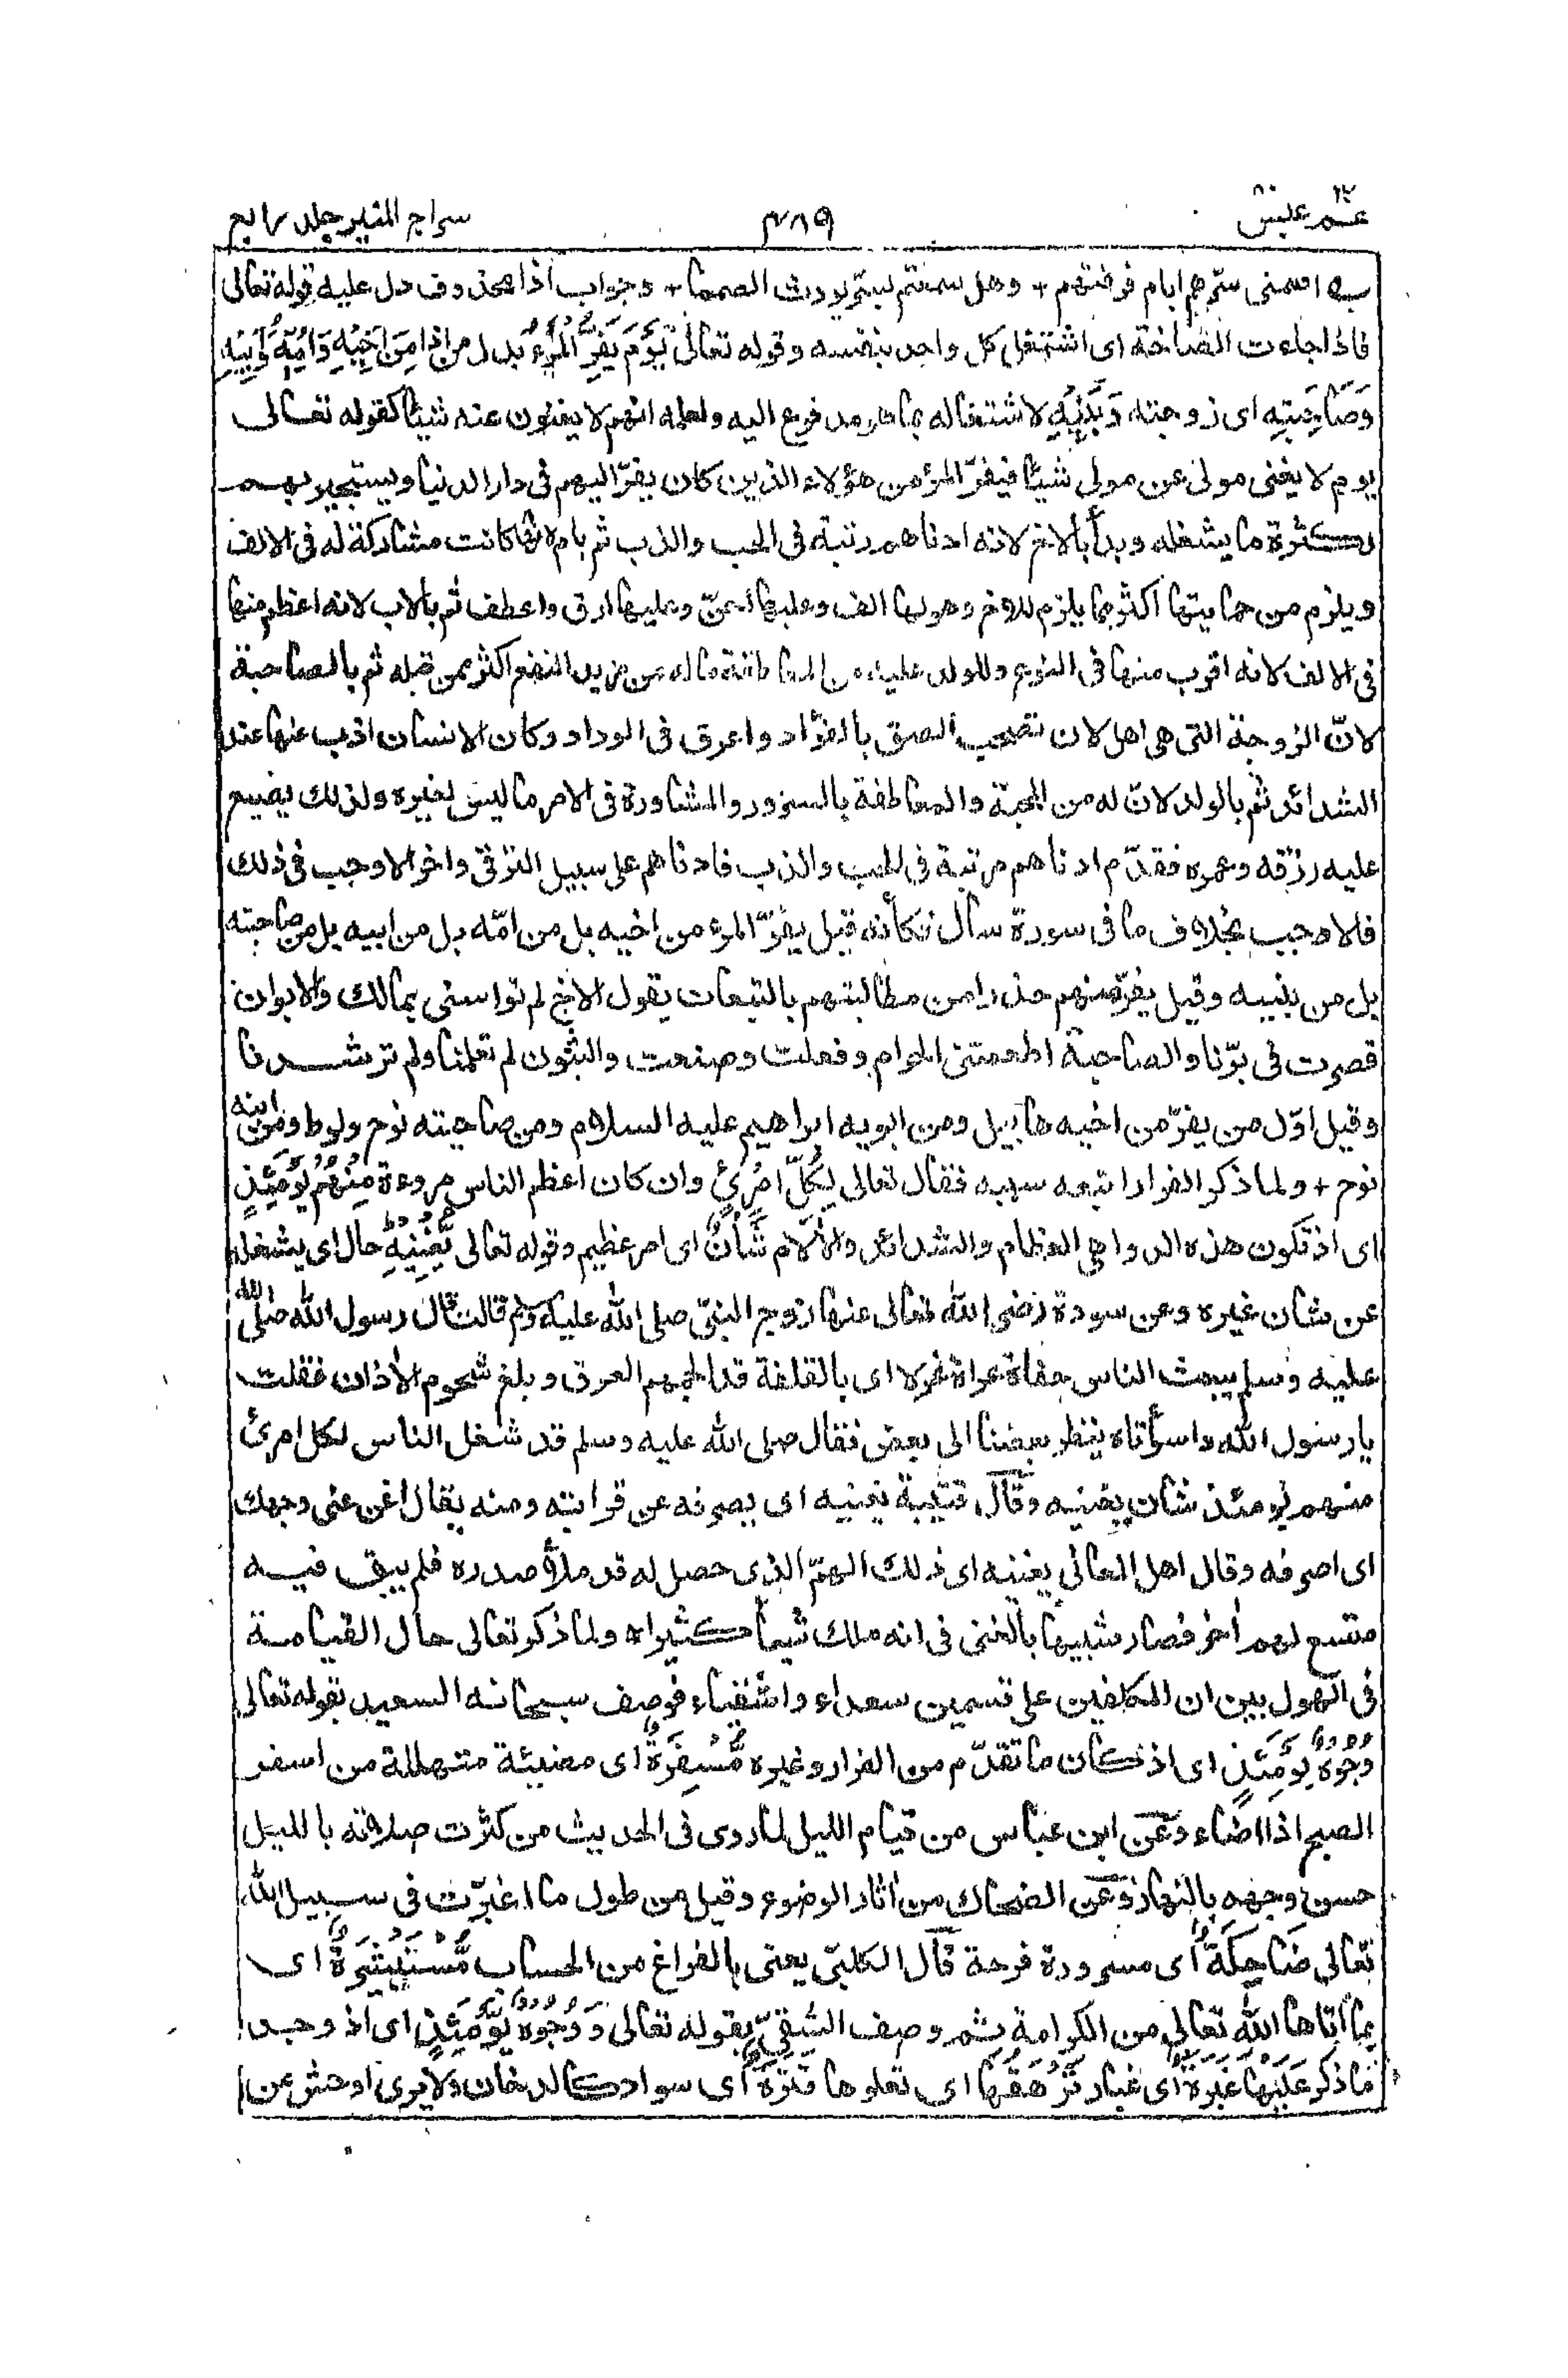 عمّ عبس ٤٨٩ سراج المنير جلد رابع
اصمنى سرهم ايام فرقتهم + وهل سمعتم بسرّ يورث الصمما + وجواب اذا محذوف دل عليه قوله تعالى
فاذا جاءت الصاخة اى اشتغل كل واحد بنفسه وقوله تعالى يَوْمَ يَفِرُّ الْمَرْءُ بدل من اذا مِنْ اَخِيْهِ وَاُمِّهٖ وَاَبِيْهِ
وَصَاحِبَتِهٖ اى زوجته وَبَنِيْهِ لاشتغاله بما هو مدفوع اليه ولعلمه انهم لا يغنون عنه شيئا كقوله تعالى
يوم لا يغنى مولى عن مولى شيئا فيفرّ المرء من هؤلاء الذين كان يفرّ اليهم فى دار الدنيا ويستجير بهم
لكثرة ما يشغله وبدأ بالاخ لانه ادناهم رتبة فى الحب والذب ثم بام لانها كانت مشاركة له فى الالف
ويلزم من حمايتها اكثر مما يلزم للاخ وهو لها الف وعليها احنّ وعليها ارق واعطف ثم بالاب لانه اعظم منها
فى الالف لانه اقرب منها فى النوع وللولد عليه من العاطفة ما له من مزيد النفع اكثر ممن قبله ثم بالصاحبة
لانّ الزوجة التى هى اهل لان تصحب الصق بالفؤاد واعرق فى الوداد وكان الانسان اذب عنها عند
الشدائد ثم بالولد لانّ له من المحبة والعاطفة بالسرور والمشاورة فى الامر ما ليس لغيره ولذلك يضيع
عليه رزقه وعمره فقدّم ادناهم مرتبة فى الحب والذب فادناهم على سبيل الترقى واخر الاوجب فى ذلك
فالاوجب بخلاف ما فى سورة سأل فكأنه قيل يفرّ المرء من اخيه بل من امّه بل من ابيه بل من صاحبته
بل من بنيه وقيل يفرّ منهم حذرا من مطالبتهم بالتبعات يقول الاخ لم تواسنى بمالك والابوان
قصرت فى برّنا والصاحبة اطعمتنى الحرام وفعلت وصنعت والبنون لم تعلمنا ولم ترشدنا
وقيل اوّل من يفرّ من اخيه هابيل ومن ابويه ابراهيم عليه السلام ومن صاحبته نوح ولوط ومن ابنه
نوح + ولما ذكر الفرار اتبعه سببه فقال تعالى لِكُلِّ امْرِئٍ وان كان اعظم الناس مروءة مِنْهُمْ يَوْمَئِذٍ
اى اذ تكون هذه الدواهى العظام والشدائد والآلام شَأْنٌ اى امر عظيم وقوله تعالى يُغْنِيْهِ حال اى يشغله
عن شان غيره وعن سودة رضى الله تعالى عنها زوج النبىّ صلى الله عليه وسلم قالت قال رسول الله صلى الله
عليه وسلم يبعث الناس حفاة عراة غرلا اى بالقلفة قد الجمهم العرق وبلغ شحوم الآذان فقلت
يا رسول الله واسوأتاه ينظر بعضنا الى بعض فقال صلى الله عليه وسلم قد شغل الناس لكل امرئ
منهم يومئذ شان يغنيه وقال قتيبة يغنيه اى يصرفه عن قرابته ومنه يقال اغن عنى وجهك
اى اصرفه وقال اهل المعانى يغنيه اى ذلك الهمّ الذى حصل له قد ملأ صدره فلم يبق فيه
متسع لهم آخر فصار شبيها بالغنى فى انه ملك شيئا كثيرا ولما ذكر تعالى حال القيامة
فى الهول بين ان المكلفين على قسمين سعداء واشقياء فوصف سبحانه السعيد بقوله تعالى
وُجُوْهٌ يَّوْمَئِذٍ اى اذ كان ما تقدّم من الفرار وغيره مُّسْفِرَةٌ اى مضيئة متهللة من اسفر
الصبح اذا اضاء وعن ابن عباس من قيام الليل لما روى فى الحديث من كثرت صلاته بالليل
حسن وجهه بالنهار وعن الضحاك من آثار الوضوء وقيل من طول ما اغبرّت فى سبيل الله
تعالى ضَاحِكَةٌ اى مسرورة فرحة قال الكلبىّ يعنى بالفراغ من الحساب مُّسْتَبْشِرَةٌ اى
بما آتاها الله تعالى من الكرامة ثم وصف الشقىّ بقوله تعالى وَوُجُوْهٌ يَّوْمَئِذٍ اى اذ وجد
ما ذكر عَلَيْهَا غَبَرَةٌ اى غبار تَرْهَقُهَا اى تعلوها قَتَرَةٌ اى سواد كالدخان ولا يرى اوحش من